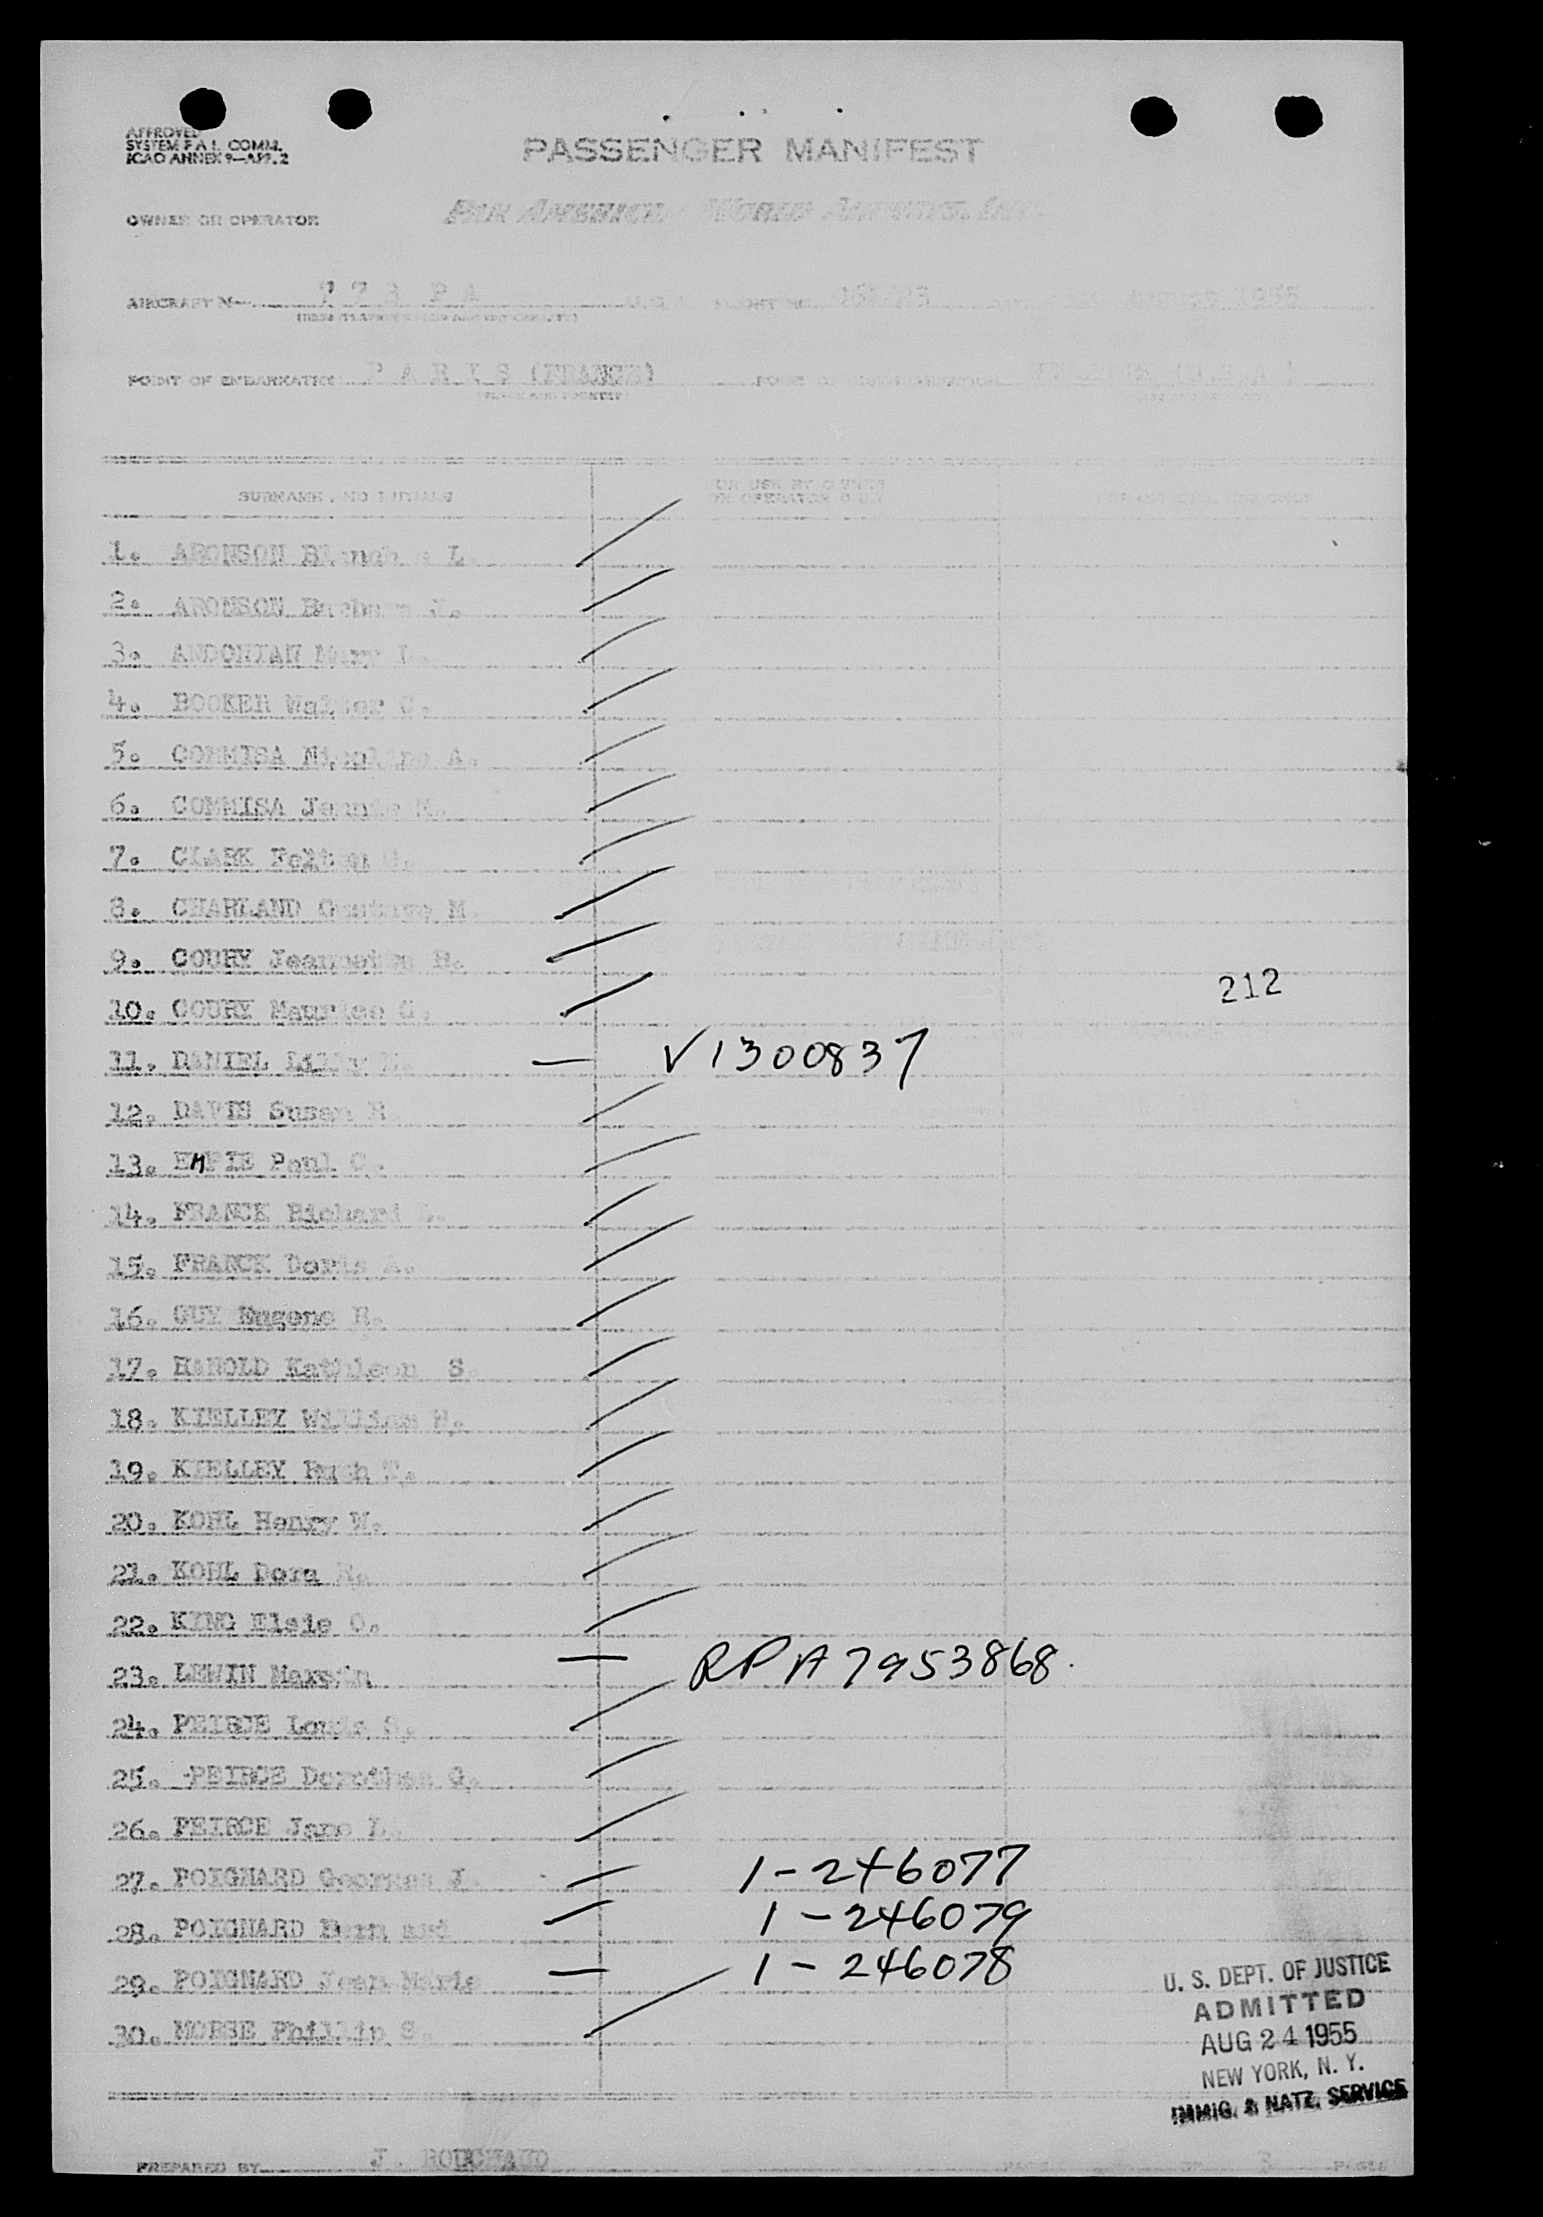 APPROVED
SYSTEM F A L COMM.
ICAO ANNEX 9—APP. 2
PASSENGER MANIFEST
OWNER OR OPERATOR
PAN AMERICAN WORLD AIRWAYS, INC.
AIRCRAFT PA 1955
POINT OF EMBARKATION P A R I S (FRANCE)
SURNAME AND INITIALS
FOR USE BY OWNER
OR OPERATOR ONLY
1. ARONSON Blanche L.
2. ARONSON Barbara
3. ANDONIAN Mary
4. BOOKER Walter C.
5. COMMISA A.
6. COMMISA Jennie
7. CLARK Felton
8. CHARLAND Gustave M
9. COURY Jeannette
10. COURY Maurice G.
212
11. DANIEL Lilly — V1300837
12. DAVIS Susan
13. EMPIE Paul C.
14. FRANCK Richard
15. FRANCK Doris A.
16. GUY Eugene R.
17. HAROLD Kathleen S.
18. KIELLEY William H.
19. KIELLEY
20. KOHL Henry W.
21. KOHL Dora
22. KING Elsie O.
23. LEWIN — RPA 7953868.
24. PEIRCE Louis S.
25. PEIRCE Dorothea G.
26. PEIRCE Jane L.
27. POIGNARD Georges J. — 1-246077
28. POIGNARD Bernard — 1-246079
29. POIGNARD Jean Marie — 1-246078
30. MORSE Phillip S.
U. S. DEPT. OF JUSTICE
ADMITTED
AUG 24 1955
NEW YORK, N. Y.
IMMIG. & NATZ. SERVICE
PREPARED BY J. ROUCHAUD 3 PAGES